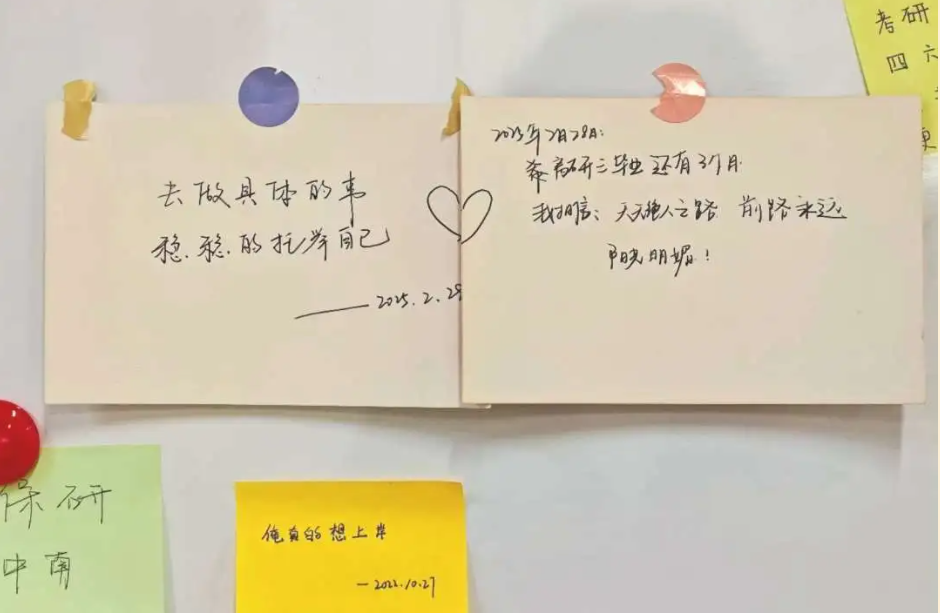 去做具体的事
稳稳的托举自己
——2025.2.28
2025年2月28日：
离研三毕业还有3个月
我相信：天无绝人之路 前路永远
阳光明媚！
考研
四六
保研
中南
俺真的想上岸
—2022.10.27